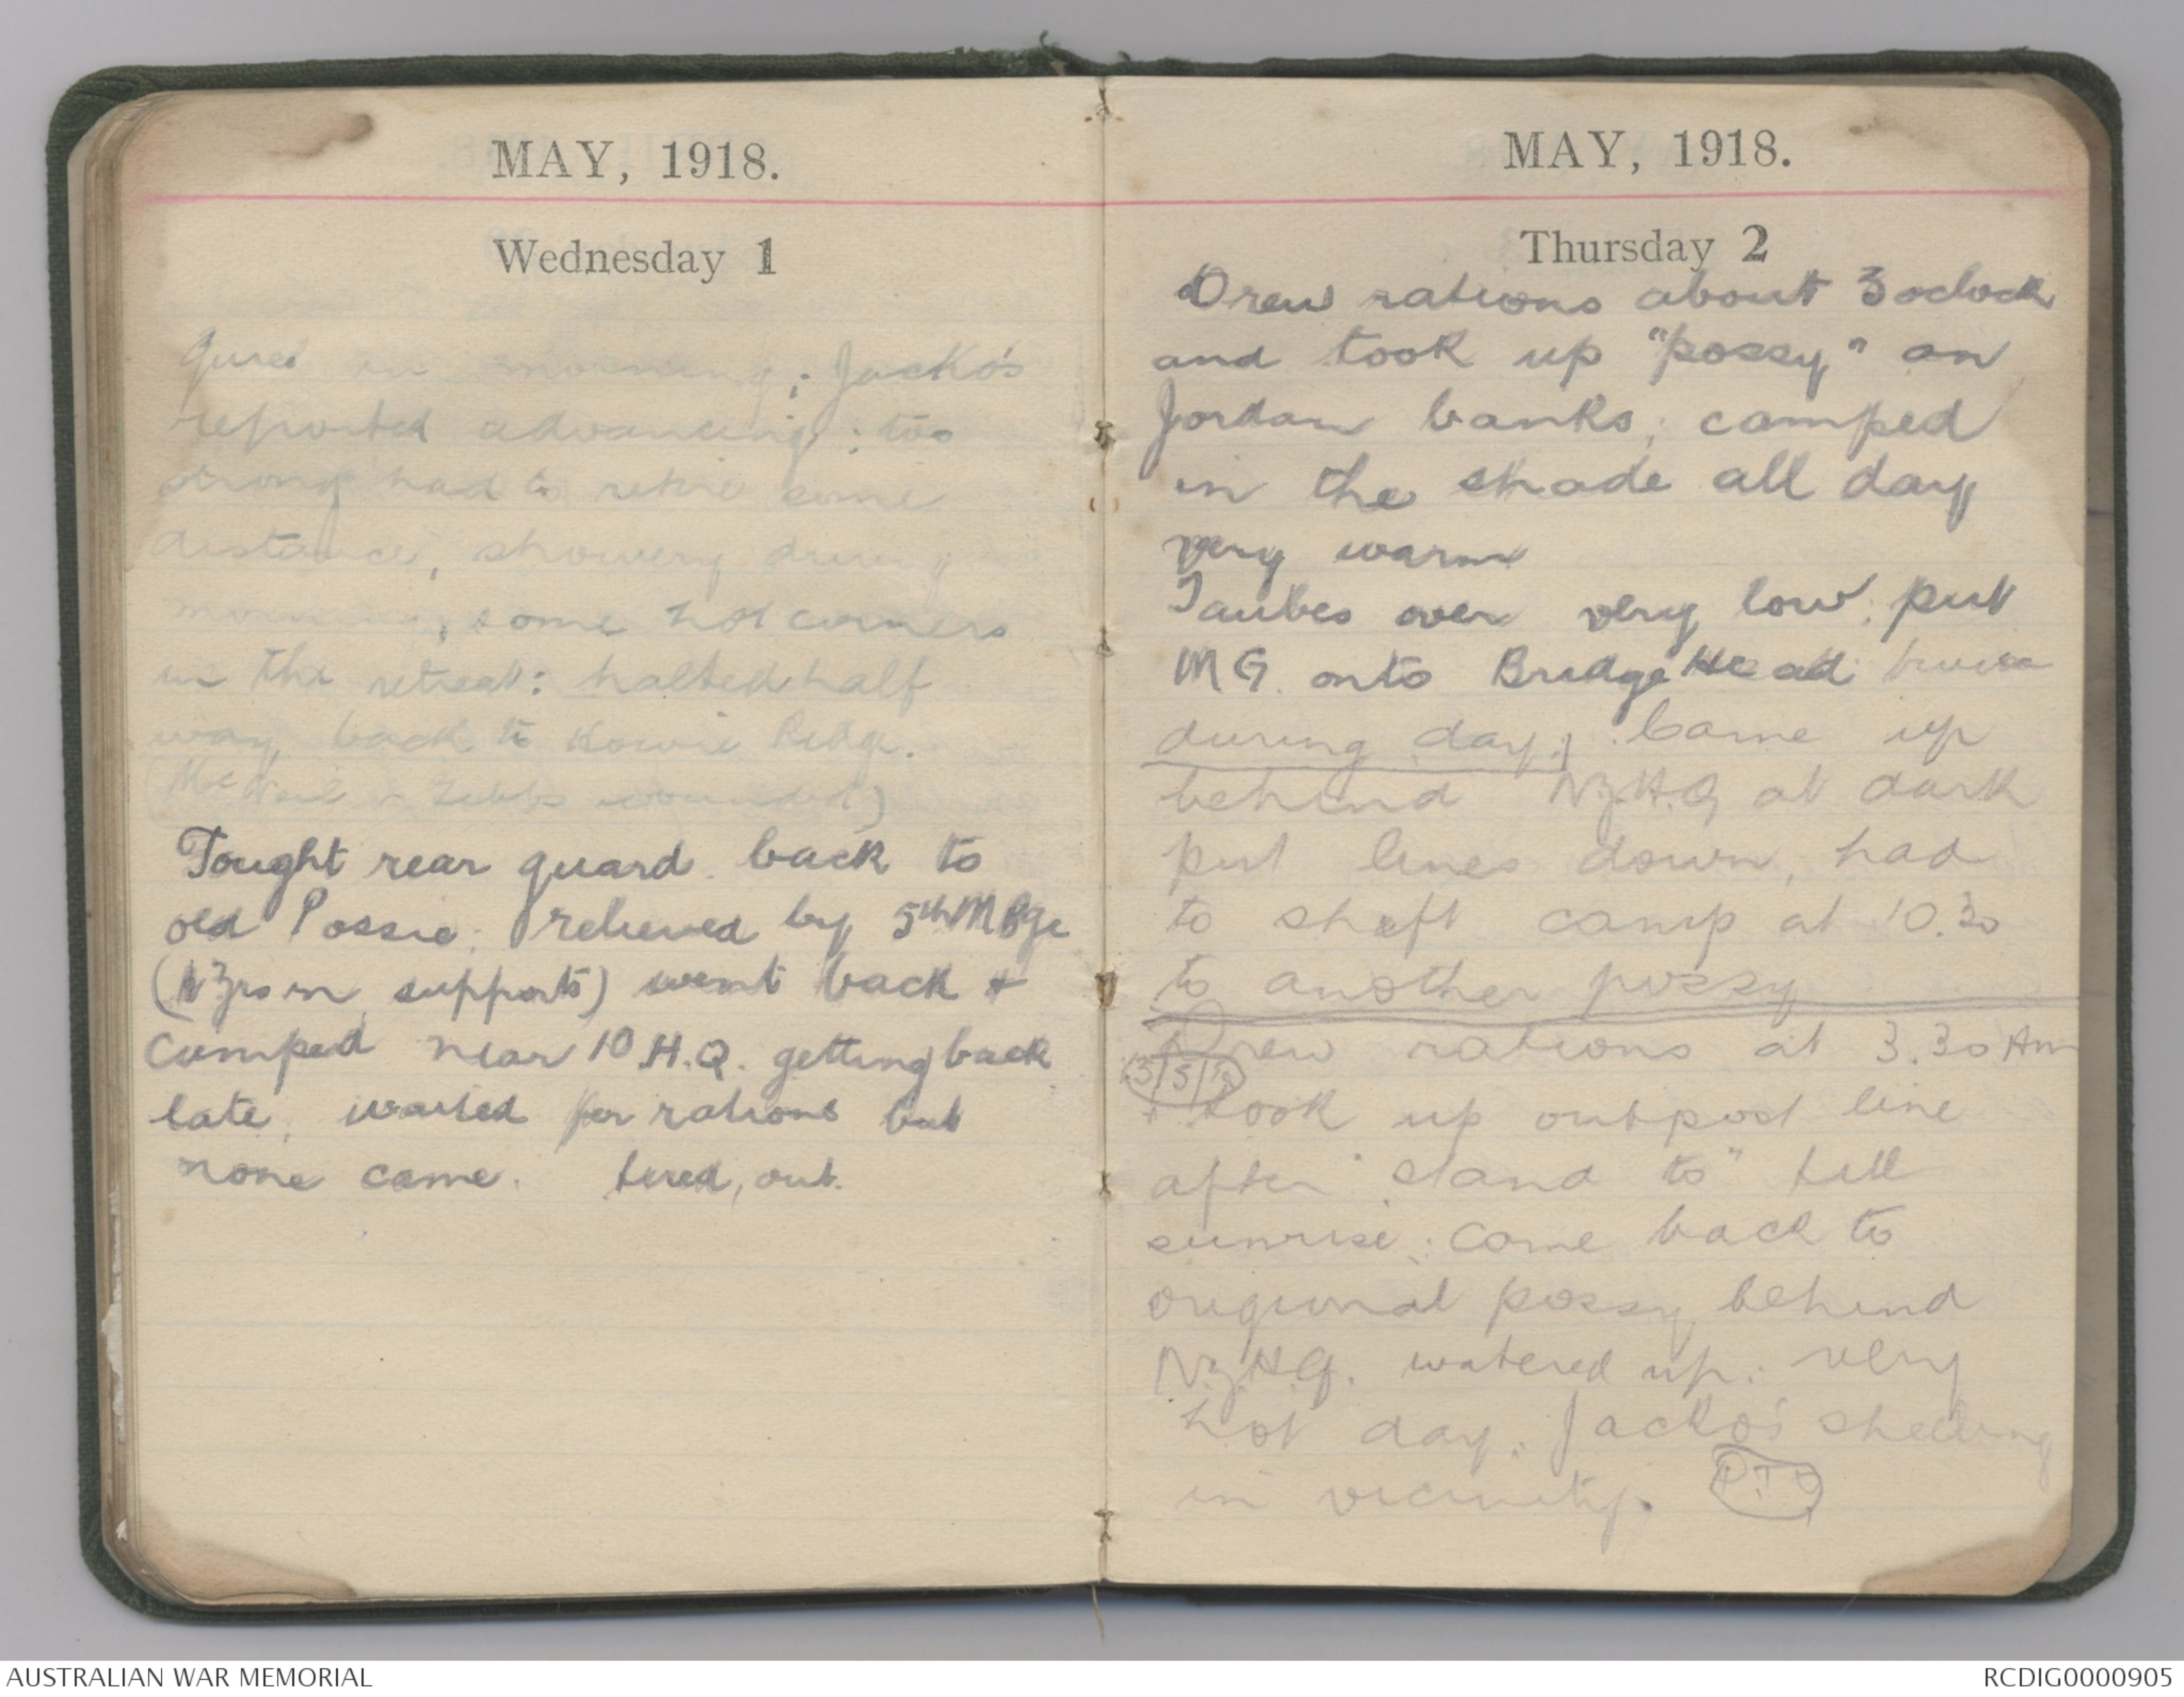 MAY, 1918.
Wednesday 1
Quiet in morning; Jacko's
reported advancing; too
strong had to retire some
distance, showery during
morning, some hot corners
in the retreat: halted half
way back to Ridge.
(McNeil & wounded)
Fought rear guard back to
old Possie; relieved by 5th M Bge
(NZrs in supports) went back +
Camped near 10 H.Q. getting back
late, waited for rations but
none came. tired, out.
MAY, 1918.
Thursday 2
Drew rations about 3 oclock
and took up "possy" on
Jordan banks; camped
in the shade all day
very warm
Taubes over very low; put
MG onto Bridge Head twice
during day; Came up
behind NZ.H.Q at dark
put lines down, had
to shift camp at 10.30
to another possy
Drew rations at 3.30 Am
3/5/18
+ took up outpost line
after "stand to" till
sunrise; came back to
origional possy behind
NZ.H.Q. watered up; very
hot day; Jacko's shelling
in vicinity. PTO
AUSTRALIAN WAR MEMORIAL
RCDIG0000905